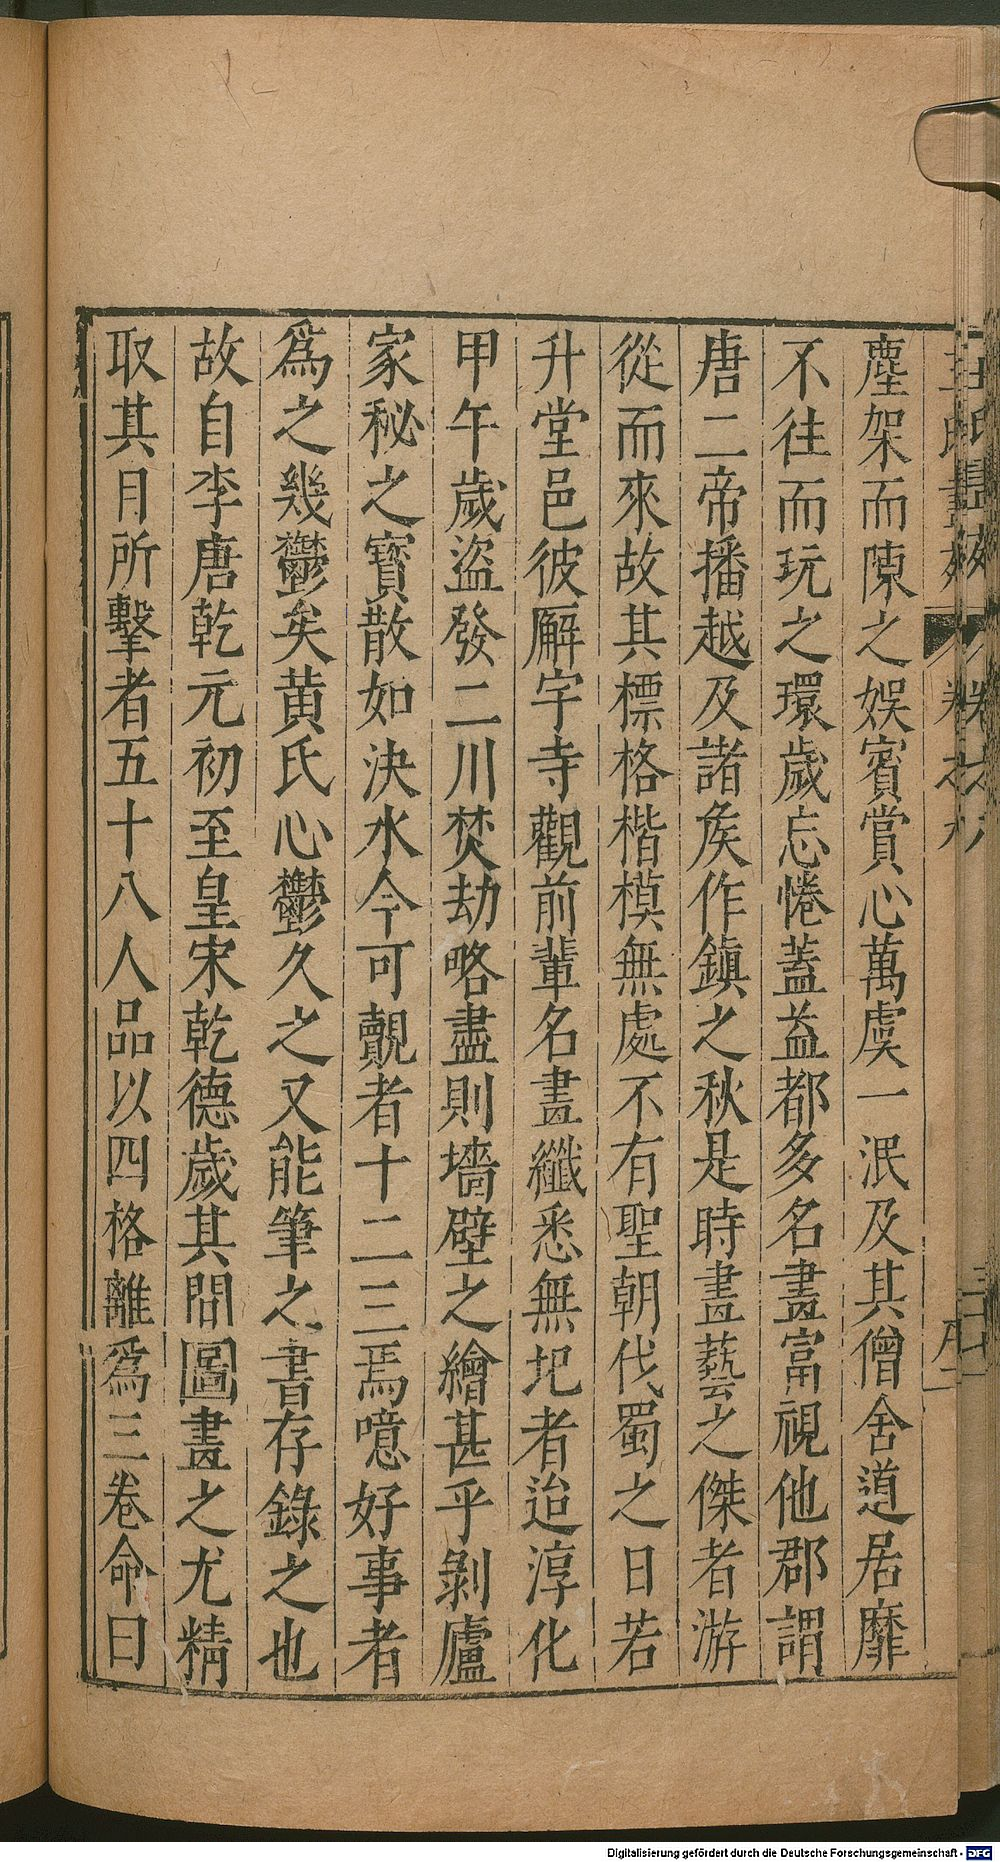 王氏畫苑
卷之六
塵架而陳之娛賓賞心萬虞一泯及其僧舍道居靡
不往而玩之環歲忘惓蓋益都多名畫富視他郡謂
唐二帝播越及諸矦作鎮之秋是時畫藝之傑者游
從而來故其標格楷模無處不有聖朝伐蜀之日若
升堂邑彼廨宇寺觀前輩名畫纖悉無圯者迨淳化
甲午歲盜發二川焚劫略盡則墻壁之繪甚乎剝廬
家秘之寳散如決水今可覿者十二三焉噫好事者
為之幾鬱矣黄氏心鬱久之又能筆之書存錄之也
故自李唐乾元初至皇宋乾德歲其間圖畫之尤精
取其目所擊者五十八人品以四格離為三卷命曰
Digitalisierung gefördert durch die Deutsche Forschungsgemeinschaft - DFG